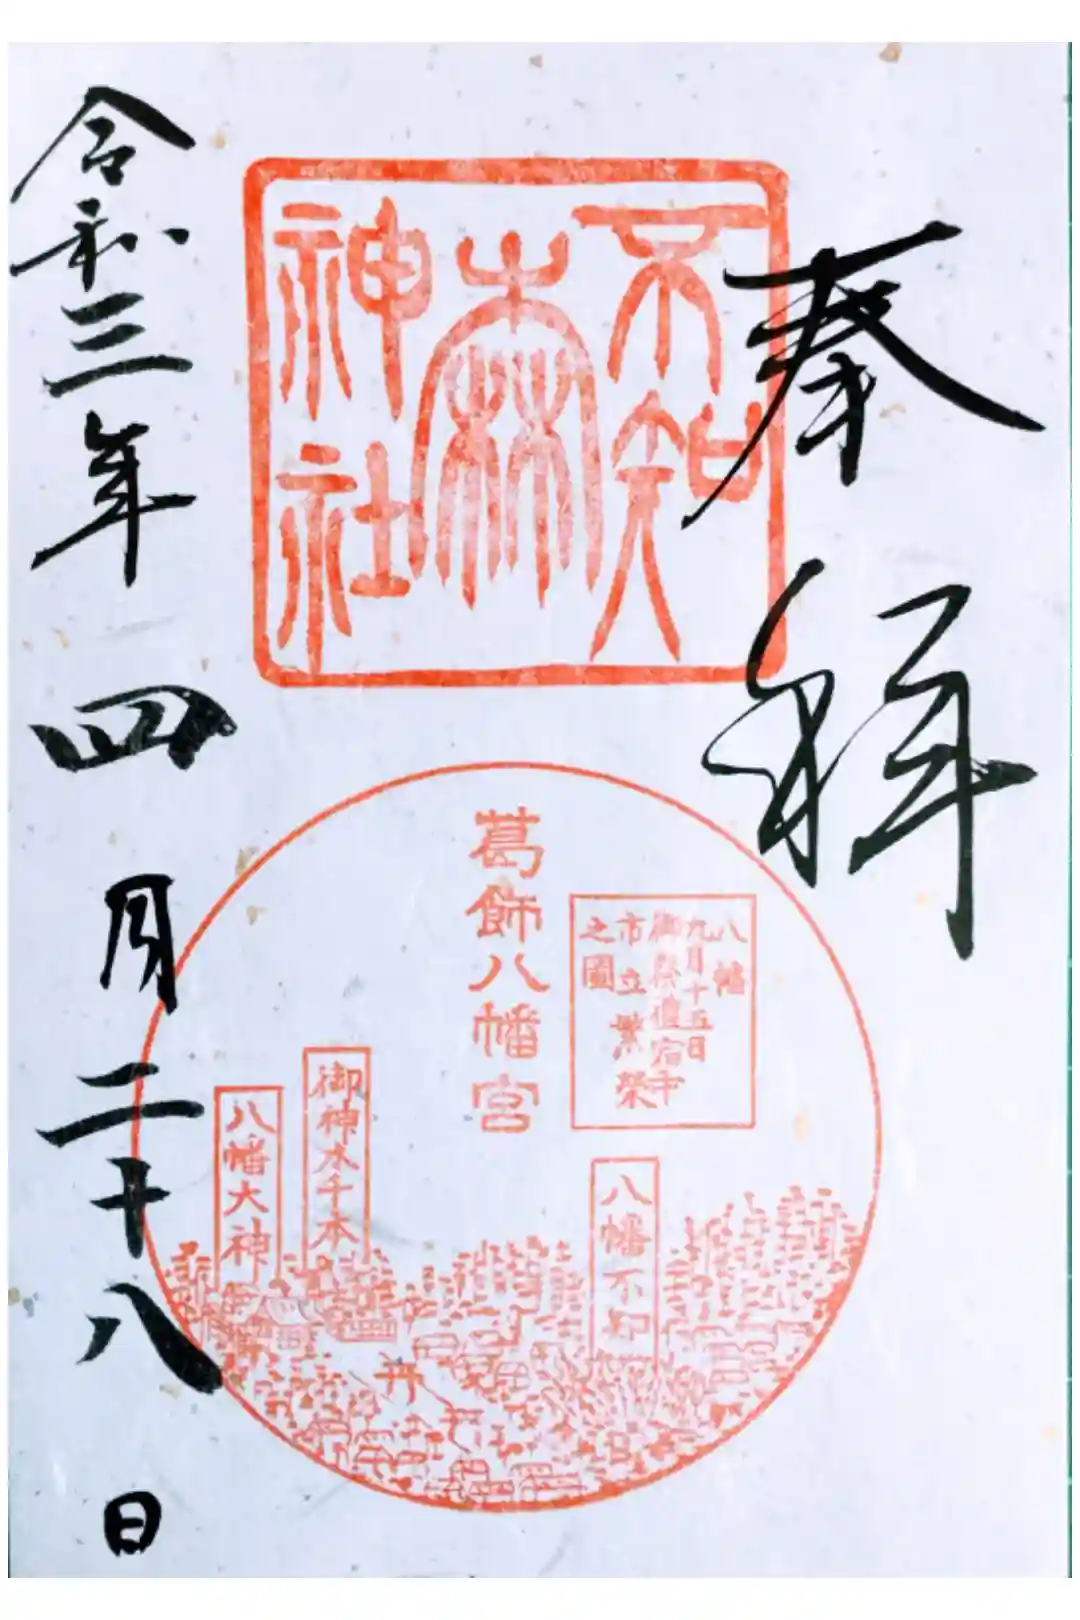 奉拝
不知
森
神社
葛飾八幡宮
八幡
九月十五日
市立繁榮
之圖
八幡不知
御神木千本
八幡大神
令和三年四月二十八日